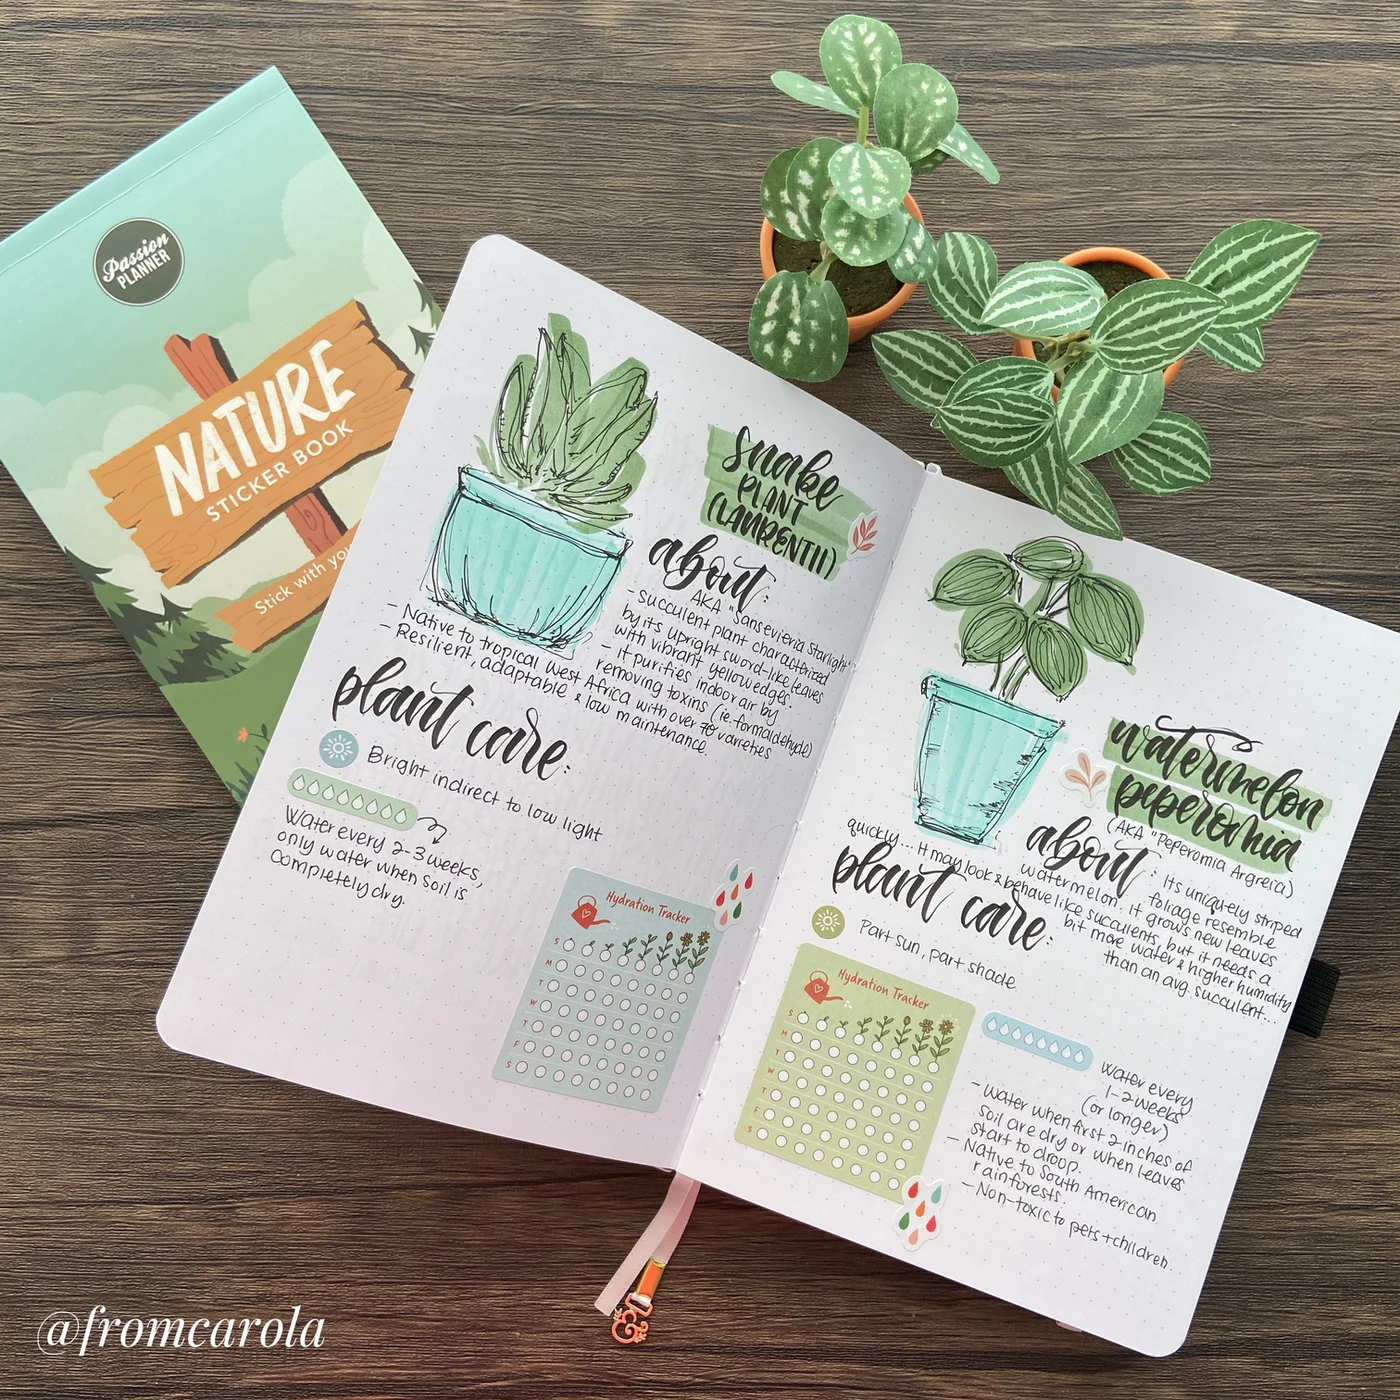 Passion
PLANNER
NATURE
STICKER BOOK
Stick with you
snake
PLANT
(LAURENTII)
about:
AKA "Sansevieria Starlight"
- succulent plant characterized
by its upright sword-like leaves
with vibrant yellow edges.
- it purifies indoor air by
removing toxins (ie. formaldehyde)
- Native to tropical West Africa with over 70 varieties
- Resilient, adaptable & low maintenance.
plant care:
Bright indirect to low light
Water every 2-3 weeks,
only water when soil is
completely dry.
Hydration Tracker
S
M
T
W
T
F
S
watermelon
peperomia
(AKA "Peperomia Argreia)
about: Its uniquely striped
foliage resemble
watermelon. it grows new leaves
quickly... it may look & behave like succulents, but it needs a
bit more water & higher humidity
than an avg. succulent...
plant care:
Part sun, part shade
Hydration Tracker
S
M
T
W
T
F
S
Water every
1-2 weeks
(or longer)
- Water when first 2 inches of
soil are dry or when leaves
start to droop.
- Native to South American
rainforests.
- Non-toxic to pets + children.
@fromcarola